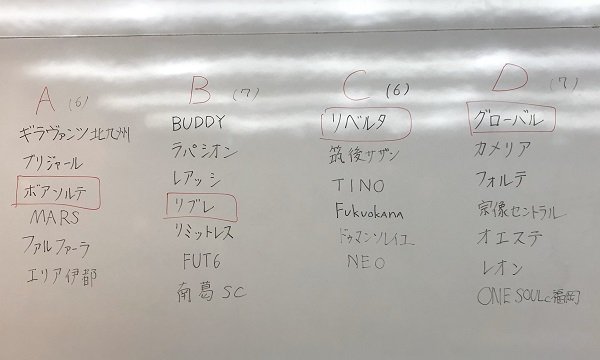 A (6)
ギラヴァンツ北九州
ブリジャール
ボアソルテ
MARS
ファルファーラ
エリア伊都
B (7)
BUDDY
ラパシオン
レアッシ
リブレ
リミットレス
FUT6
南葛SC
C (6)
リベルタ
筑後サザン
TINO
Fukuokana
ドゥマンソレイユ
NEO
D (7)
グローバル
カメリア
フォルテ
宗像セントラル
オエステ
レオン
ONE SOUL 福岡